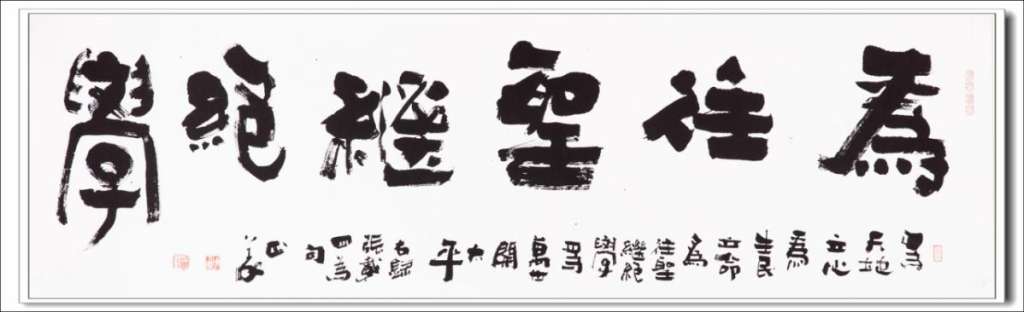 為往聖繼絕學
為天地立心為生民立命為往聖繼絕學為萬世開太平右錄張載四為句